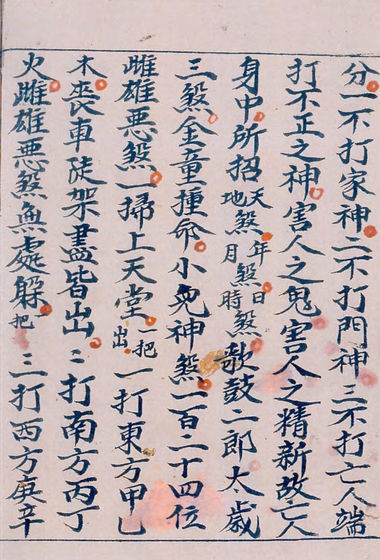 分一不打家神二不打門神三不打亡人端
打不正之神害人之鬼害人之精新故亡人
身中所招天煞地煞年煞月煞日煞時煞歌鼓二郎太歲
三煞全童撞命小兒神煞一百二十四位
雌雄惡煞一掃上天堂出把一打東方甲乙
木喪車陡架盡皆出二打南方丙丁
火雌雄惡煞無處躲把三打西方庚辛